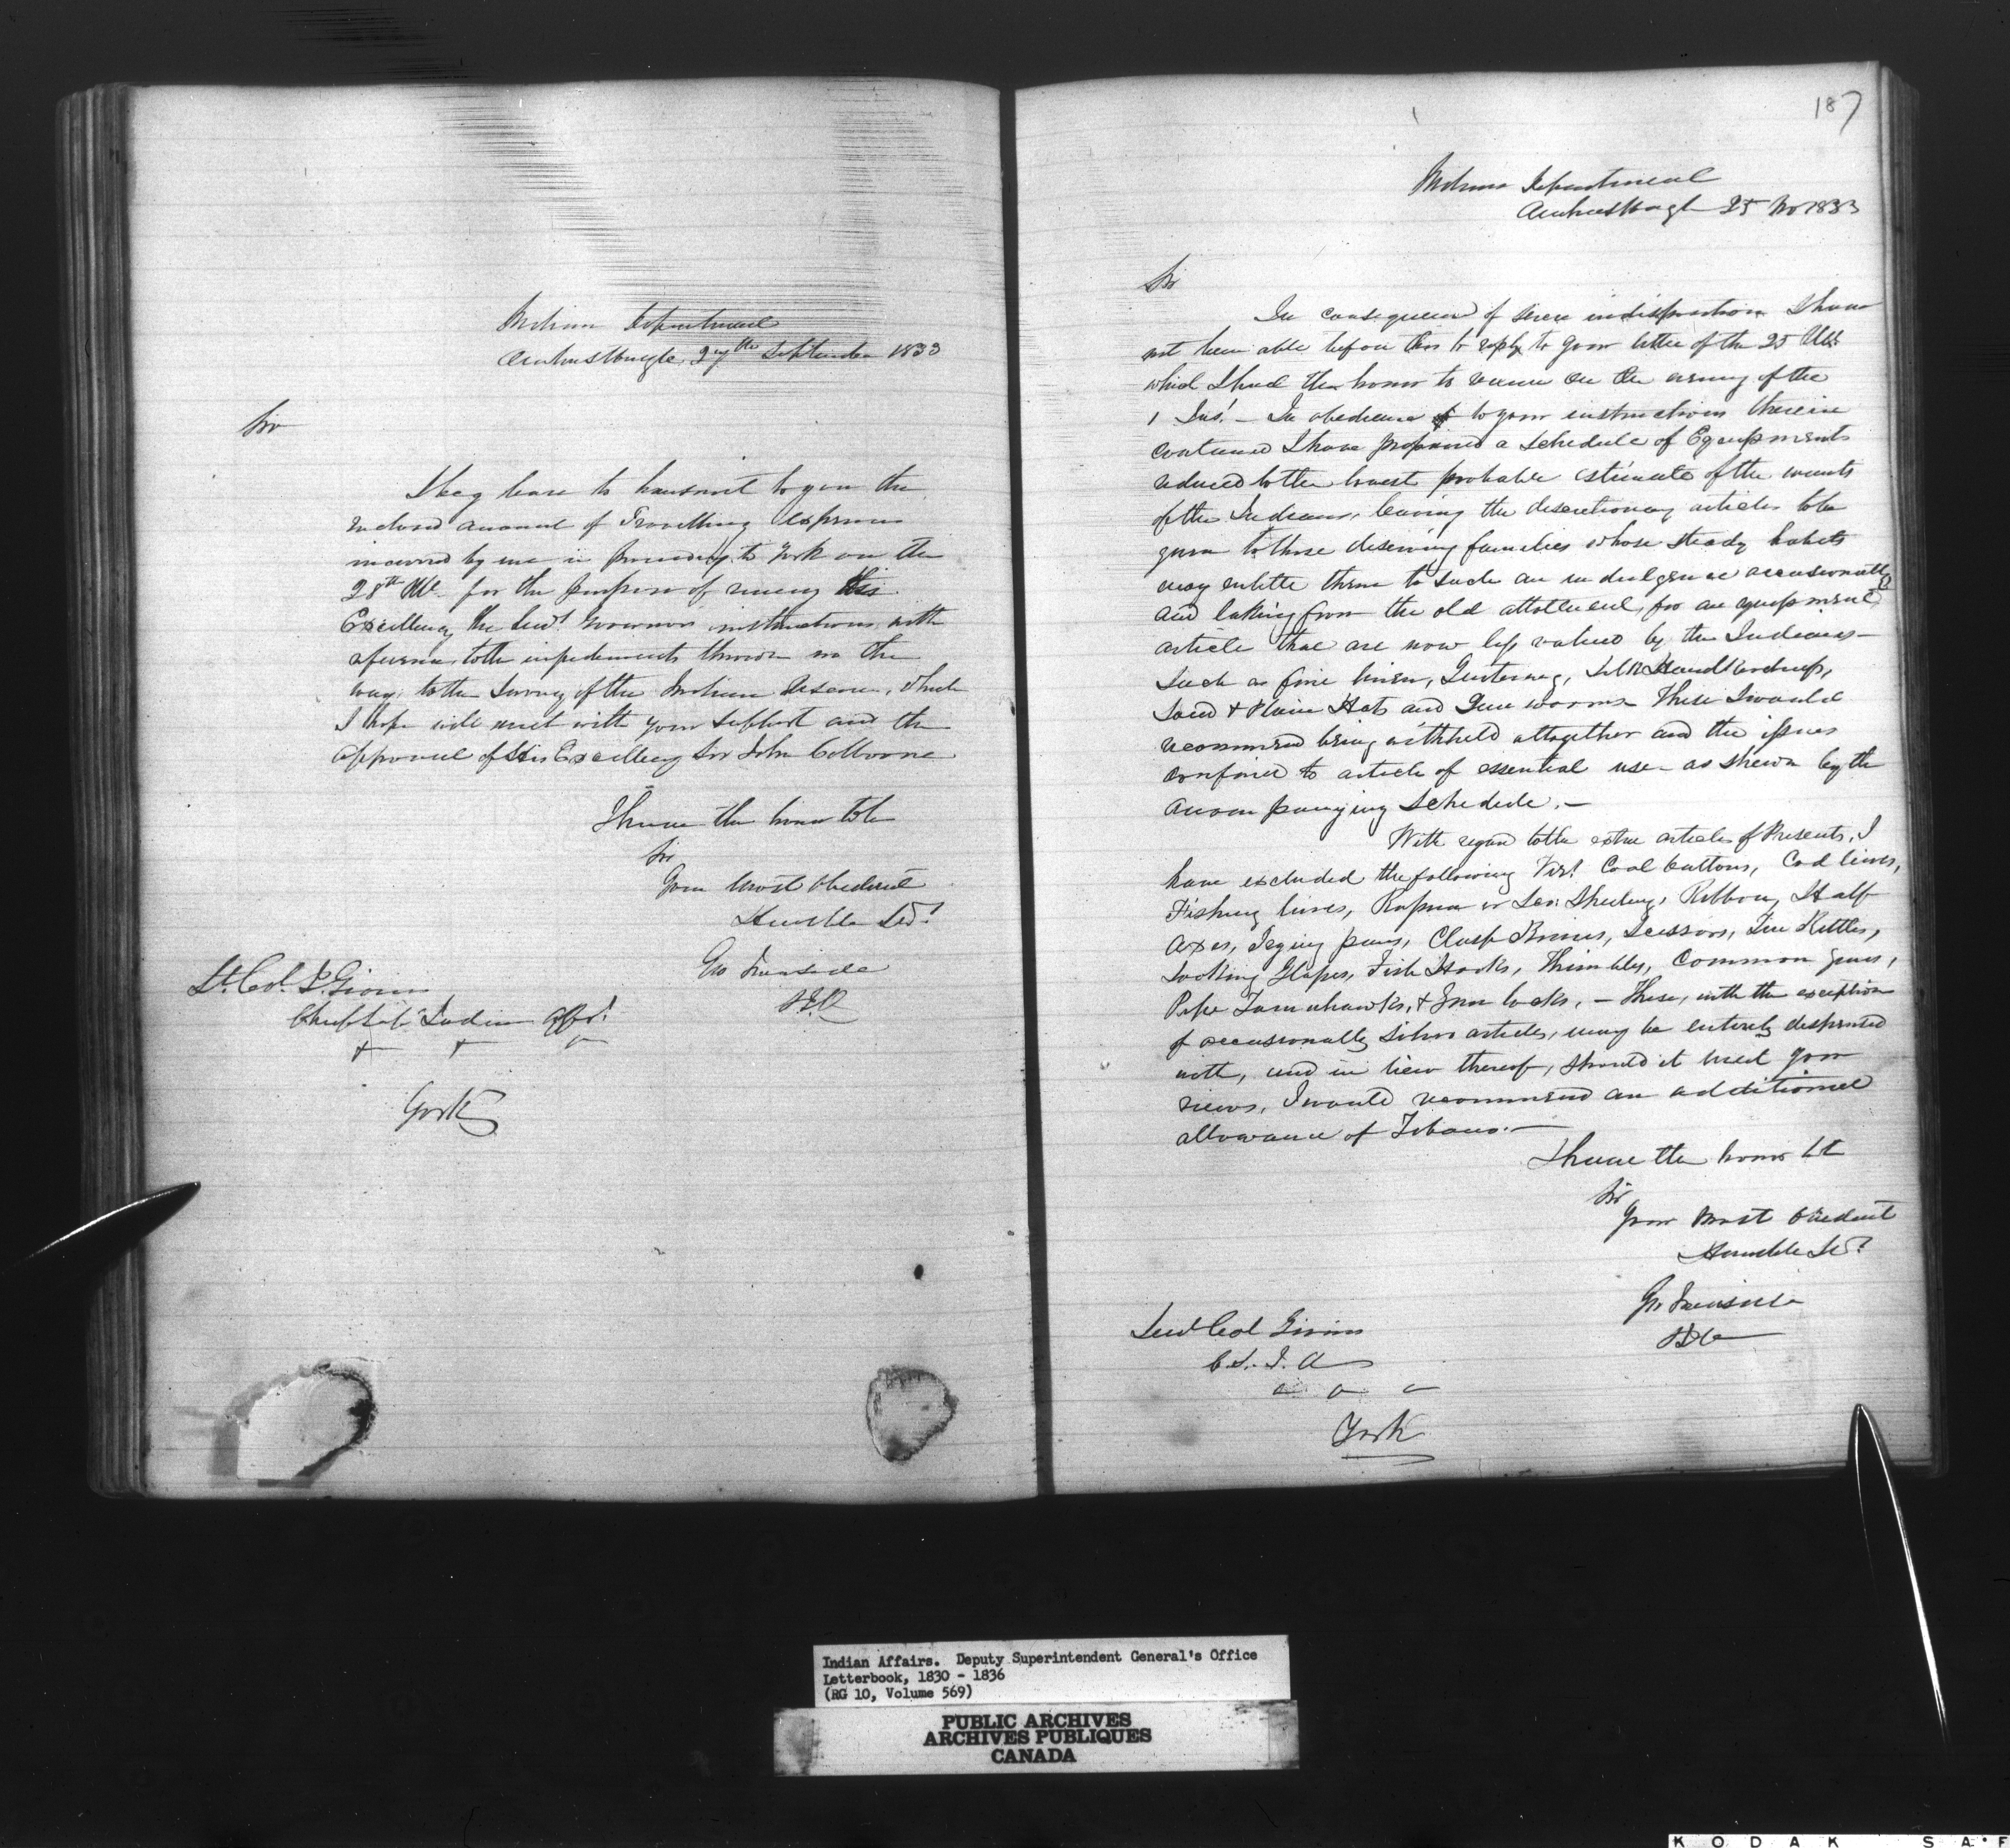 Indian Department
Amherstburgh, 27th September 1833
Sir
I beg leave to transmit to you the
inclosed account of Travelling expenses
incurred by me in proceeding to York on the
28th Ult. for the purpose of receiving His
Excellency the Lieut Governor's instructions with
reference to the impediments thrown in the
way to the Survey of the Indian Reserve, which
I hope will meet with your support and the
approval of His Excellency Sir John Colborne
I have the honor to be
Sir
Your Most Obedient
Humble Servt
Geo Ironside
S.I.A
Lt. Col. J. Givins
Chief Supt Indian Affrs
York
187
Indian Department
Amherstburgh 25 Nov 1833
Sir
In consequence of severe indisposition I have
not been able before this to reply to your letter of the 25 Ult.
which I had the honor to receive on the evening of the
1 Inst. – In obedience to your instructions therein
contained I have prepared a Schedule of Equipments
reduced to the lowest probable estimate of the wants
of the Indians, leaving the discretionary articles to be
given to those deserving families whose steady habits
may entitle them to such an indulgence occasionally
and taking from the old allotment, for an equipment,
article that are now less valued by the Indians –
Such as fine linen, Silk Handkerchiefs,
Laced & Plain Hats and Gun worms – These I would
recommend being withheld altogether and the issues
confined to article of essential use – as shewn by the
accompanying Schedule. –
With regard to the extra articles of Presents, I
have excluded the following Viz! Coat buttons, Cod lines,
Fishing lines, Russia or Sheeting, Ribbon, Half
Axes, Frying pans, Clasp Knives, Scissors, Tin Kettles,
Looking Glasses, Fish Hooks, Thimbles, Common Guns,
Pipe Tomahawks, & Gun locks, – These, with the exception
of occasionally Silver articles, may be entirely dispensed
with, and in lieu thereof, should it meet your
views, I would recommend an additional
allowance of Tobacco. –
I have the honor to be
Sir
Your Most Obedient
Humble Servt
Geo Ironside
Lieut Col Givins
C.S.I.A
York
Indian Affairs. Deputy Superintendent General's Office
Letterbook, 1830 - 1836
(RG 10, Volume 569)
PUBLIC ARCHIVES
ARCHIVES PUBLIQUES
CANADA
KODAK SA·F